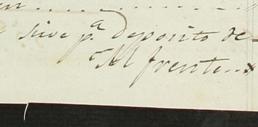 sirve p.ª deposito de
Al frente...